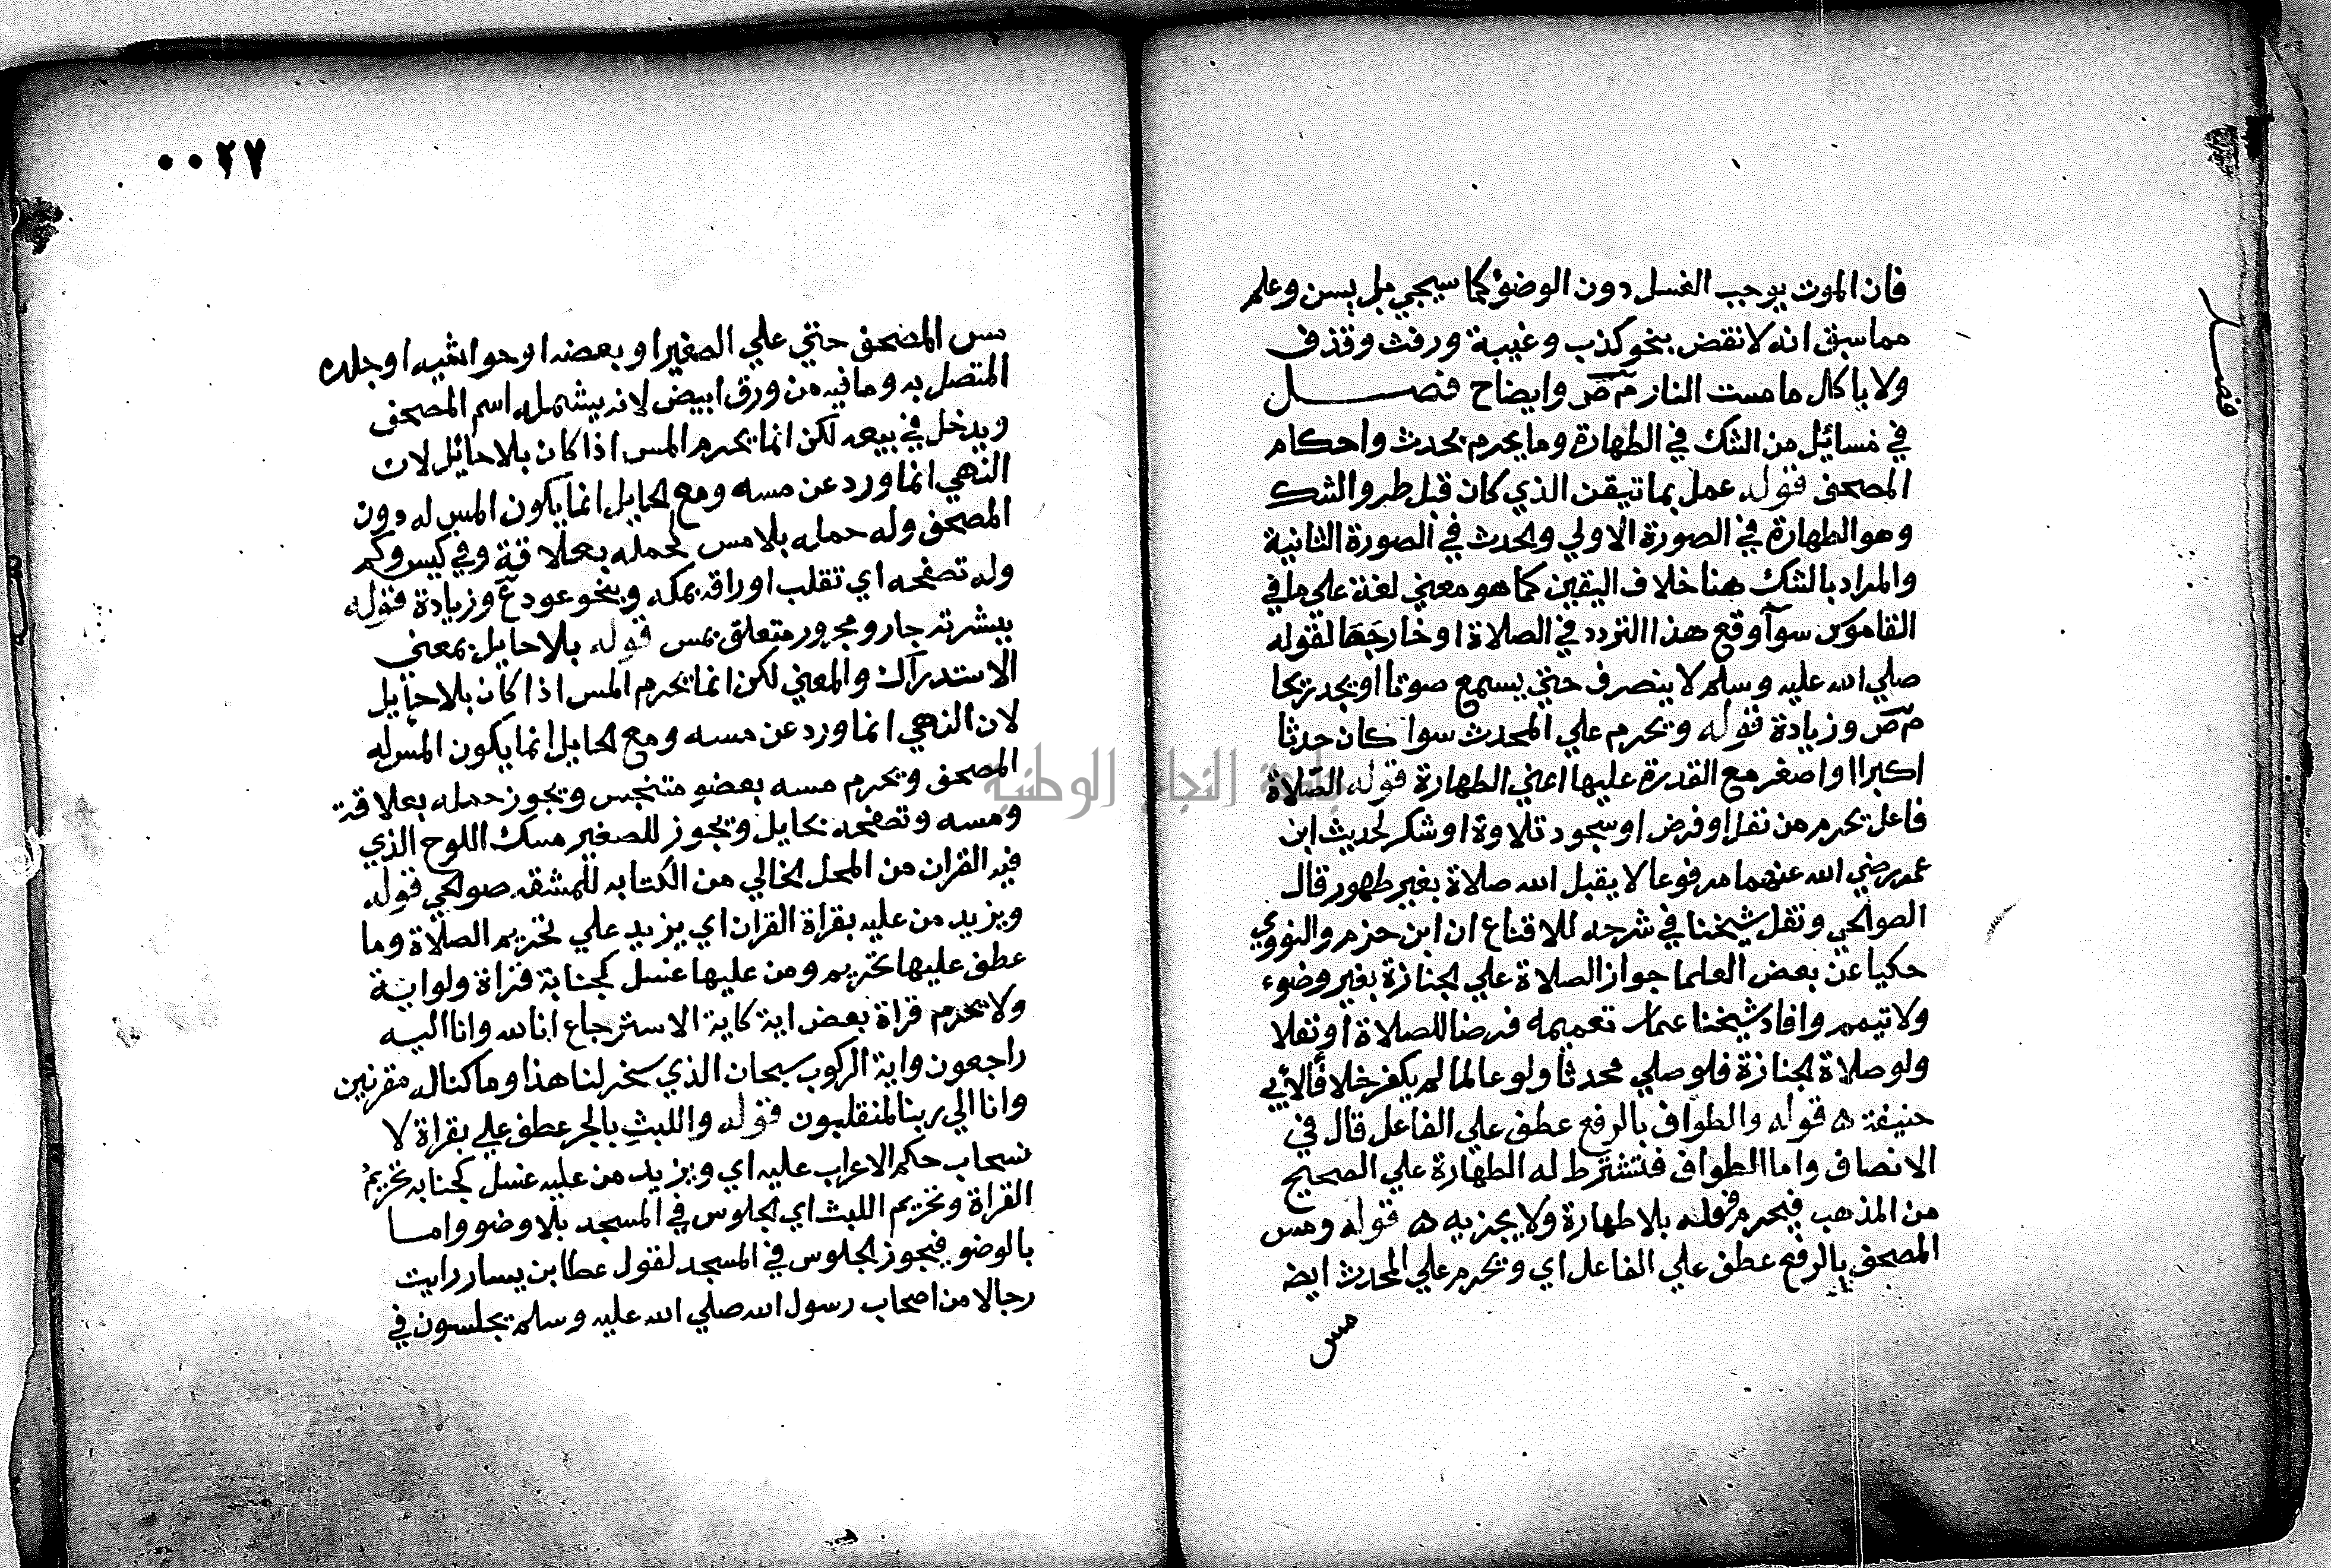 فان الموت يوجب الغسل دون الوضؤ كما سيجي بل يسن وعلم
مما سبق انه لا نقض بنحو كذب وغيبة ورفث وقذف
ولا باكل ما مست النار م ص وايضاح فصل
في مسائل من الشك في الطهارة وما يحرم بحدث واحكام
المصحف قوله عمل بما تيقن الذي كان قبل طرو الشك
وهو الطهارة في الصورة الاولي والحدث في الصورة الثانية
والمراد بالشك هنا خلاف اليقين كما هو معني لغة علي ما في
القاموس سوآ وقع هذا التردد في الصلاة او خارجها لقوله
صلي الله عليه وسلم لا ينصرف حتي يسمع صوتا او يجد ريحا
م ص وزيادة قوله ويحرم علي المحدث سوا كان حدثا
اكبرا او اصغر مع القدرة عليها اعني الطهارة قوله الصلاة
فاعل يحرم من نفل او فرض او سجود تلاوة او شكر لحديث ابن
عمر رضي الله عنهما مرفوعا لا يقبل الله صلاة بغير طهور قال
الصوالحي ونقل شيخنا في شرحه للاقناع ان ابن حزم والنووي
حكيا عن بعض العلما جواز الصلاة علي الجنازة بغير وضوء
ولا تيمم وافاد شيخنا عثمان تعميمه فرضا للصلاة او نفلا
ولو صلاة الجنازة فلو صلي محدثا ولو عالما لم يكفر خلافا لأبي
حنيفة ه قوله والطواف بالرفع عطف علي الفاعل قال في
الانصاف واما الطواف فتشترط له الطهارة علي الصحيح
من المذهب فيحرم فعله بلا طهارة ولا يجزيه ه قوله ومس
المصحف بالرفع عطف علي الفاعل اي ويحرم علي المحدث ايضا
مس
فصل
٠٠٢٧
مس المصحف حتي علي الصغير او بعضه او حواشيه او جلده
المتصل به وما فيه من ورق ابيض لانه يشمله اسم المصحف
ويدخل في بيعه لكن انما يحرم المس اذا كان بلا حائل لان
النهي انما ورد عن مسه ومع الحايل انما يكون المس له دون
المصحف وله حمله بلا مس كحمله بعلاقة وفي كيس وكم
وله تصفحه اي تقلب اوراقه بكمه وبنحو عود ع وزيادة قوله
ببشرته جار ومجرور متعلق بمس قوله بلا حايل بمعني
الاستدراك والمعني لكن انما يحرم المس اذا كان بلا حايل
لان النهي انما ورد عن مسه ومع الحايل انما يكون المس له
المصحف ويحرم مسه بعضو متنجس ويجوز حمله بعلاقة
ومسه وتصفحه بحايل ويجوز للصغير مسك اللوح الذي
فيه القران من المحل الخالي من الكتابه للمشقه صوالحي قوله
ويزيد من عليه بقراة القران اي يزيد علي تحريم الصلاة وما
عطف عليها تحريم ومن عليها غسل كجنابة قراة ولو اية
ولا يحرم قراة بعض اية كاية الاسترجاع انا لله وانا اليه
راجعون واية الركوب سبحان الذي سخر لنا هذا وما كنا له مقرنين
وانا الي ربنا لمنقلبون قوله واللبث بالجر عطف علي بقراة لا
نسحاب حكم الاعراب عليه اي ويزيد من عليه غسل كجنابه تحريمُ
القراة وتحريم اللبث اي الجلوس في المسجد بلا وضو واما
بالوضو فيجوز الجلوس في المسجد لقول عطا بن يسار رايت
رجالا من اصحاب رسول الله صلي الله عليه وسلم يجلسون في
النجاح الوطنية